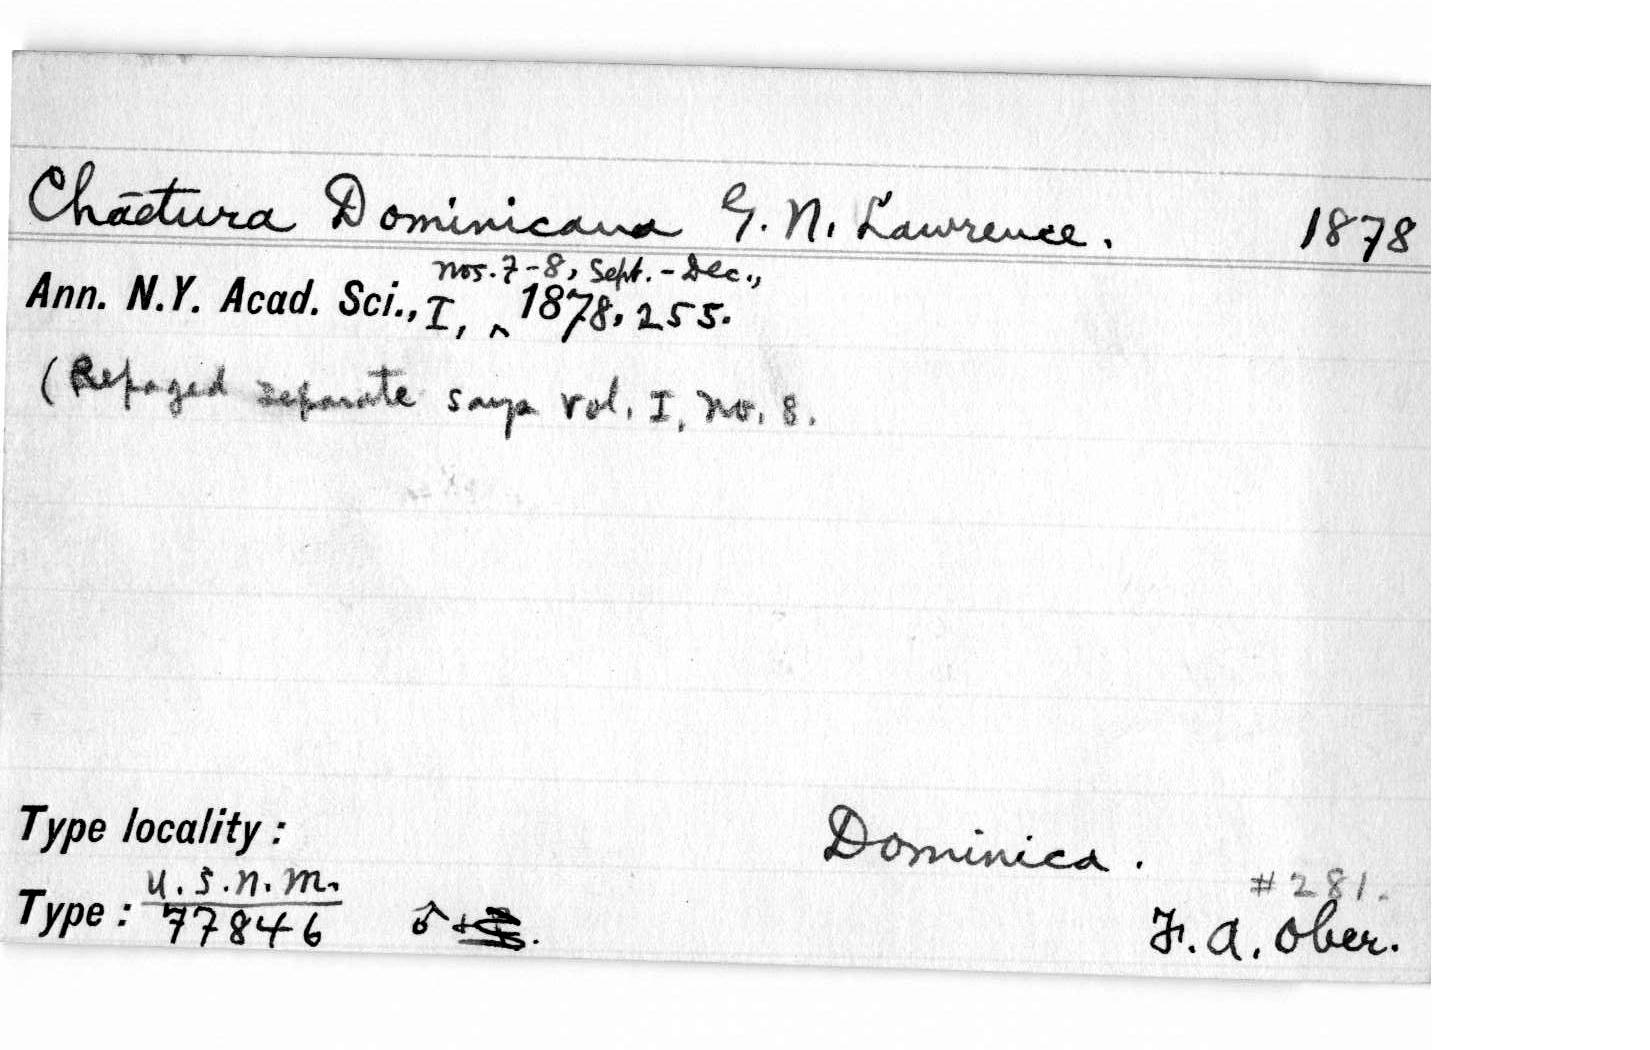 Chaetura Dominicana G. N. Lawrence. 1878
nos. 7-8, Sept. - Dec.,
Ann. N.Y. Acad. Sci., I, ^ 1878, 255.
(Repaged separate says vol. I, no. 8.
Type locality: Dominica.
U.S.N.M. #281.
Type: 77846 ♂ + F. A. Ober.